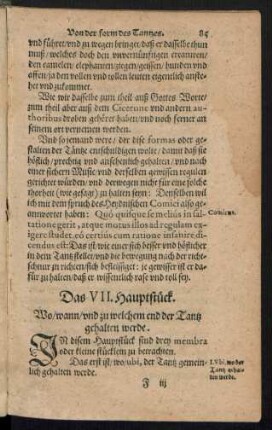 Von der form des Tantzes. 84
vnd führet/ vnd zu wegen bringet/ daß er dasselbe thun
muß/ welches doch den vnvernünfftigen creaturen/
den camelen/ elephanten/ geyen/ geissen/ hunden vnd
affen/ ja den vollen vnd tollen leuten eigentlich anste-
het vnd zukommet.
Wie wir dasselbe zum theil auß Gottes Worte/
zum theil aber auß dem Cicerone vnd andern au-
thoribus droben gehöret haben/ vnd noch ferner an
seinem ort vernemen werden.
Vnd so jemand were/ der dise formas oder ge-
stalten der Täntze entschuldigen wolte/ damit daß sie
höflich/ prächtig vnd ansehenlich gehalten/ vnd nach
einer sichern Music/ vnd derselben gewissen regulen
gerichtet würden/ vnd derwegen nicht für eine solche
thorheit (wie gesagt) zu halten seyen: Demselben wil
ich mit dem spruch des Heydnischen Comici also ge-
antwortet haben: Quò quisque se melius in sal-
tatione gerit, atque motus illius ad regulam ex-
igere studet, eò certius cum ratione insanire di-
cendus est: Das ist/ wie einer sich besser vnd höflicher
in dem Tantz stellet/ vnd die bewegung nach der richt-
schnur zu richten sich befleissiget: je gewisser ist er da-
für zu halten/ daß er wissentlich rase vnd toll sey.
Comicus.
Das VII. Hauptstück.
Wo/ wann/ vnd zu welchem end der Tantz
gehalten werde.
IN disem Hauptstück sind drey membra
oder kleine stücklein zu betrachten.
Das erst ist/ wo/ ubi, der Tantz gemein-
lich gehalten werde.
I. Vbi, wo der
Tantz gehal-
ten werde.
F iiij